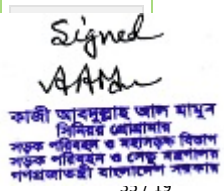 Signed
কাজী আবদুল্লাহ আল মামুন
সিনিয়র প্রোগ্রামার
সড়ক পরিবহন ও মহাসড়ক বিভাগ
সড়ক পরিবহন ও সেতু মন্ত্রণালয়
গণপ্রজাতন্ত্রী বাংলাদেশ সরকার